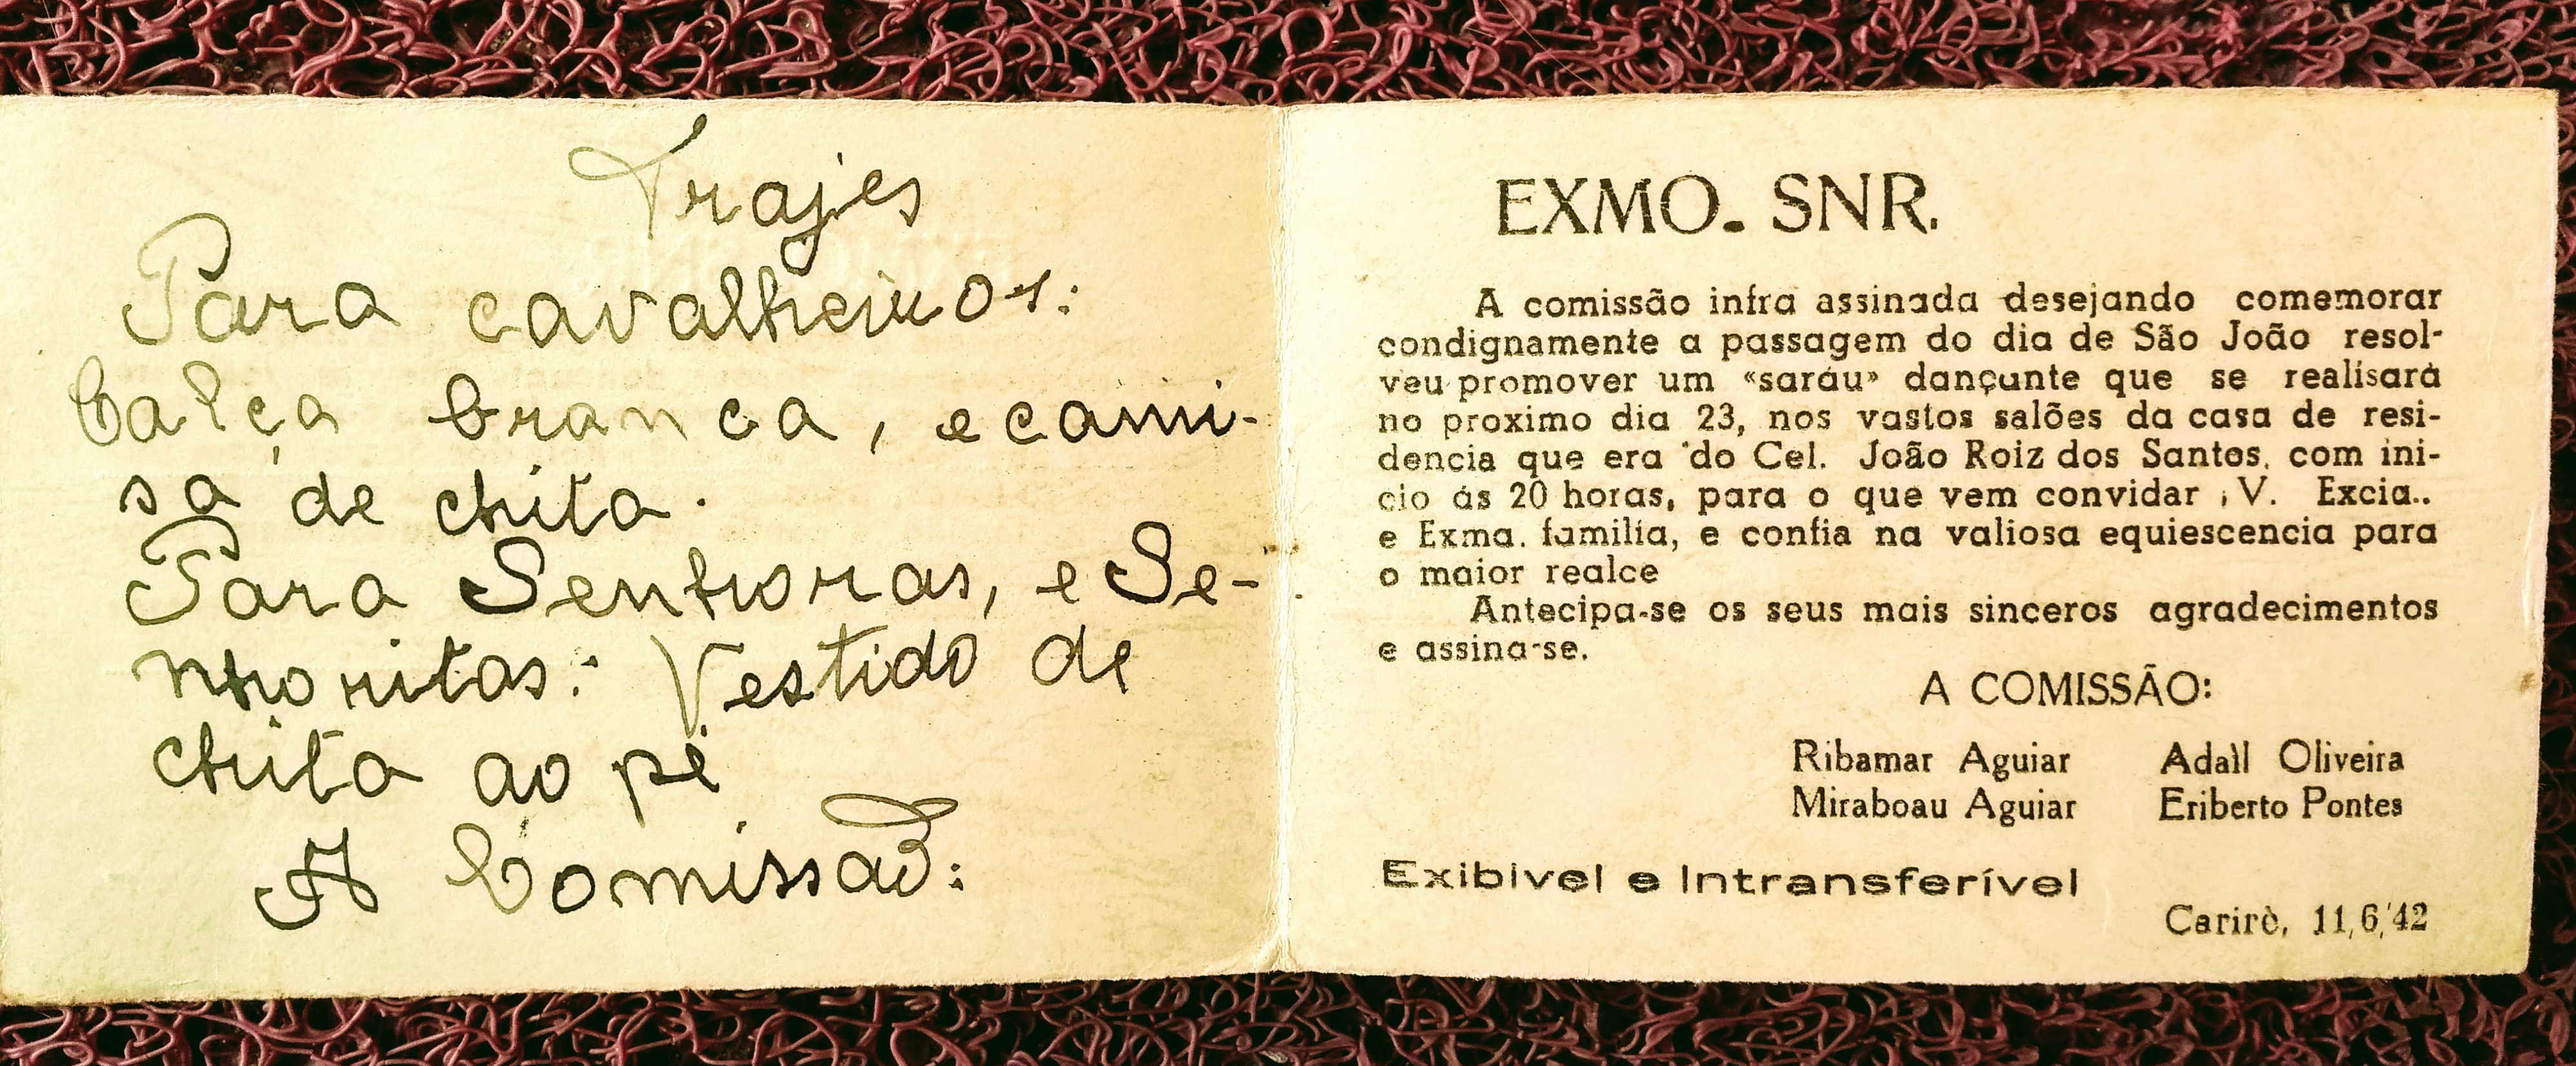 Trajes
Para cavalheiros:
Calça branca, e cami-
sa de chita.
Para Senhoras, e Se-
nhoritas: Vestido de
chita ao pé
A Comissão:
EXMO. SNR.
A comissão infra assinada desejando comemorar
condignamente a passagem do dia de São João resol-
veu promover um «saráu» dançante que se realisará
no proximo dia 23, nos vastos salões da casa de resi-
dencia que era do Cel. João Roiz dos Santos, com ini-
cio ás 20 horas, para o que vem convidar V. Excia..
e Exma. familia, e confia na valiosa equiescencia para
o maior realce
Antecipa-se os seus mais sinceros agradecimentos
e assina-se.
A COMISSÃO:
Ribamar Aguiar Adail Oliveira
Miraboau Aguiar Eriberto Pontes
Exibivel e Intransferível
Carirè, 11,6,'42